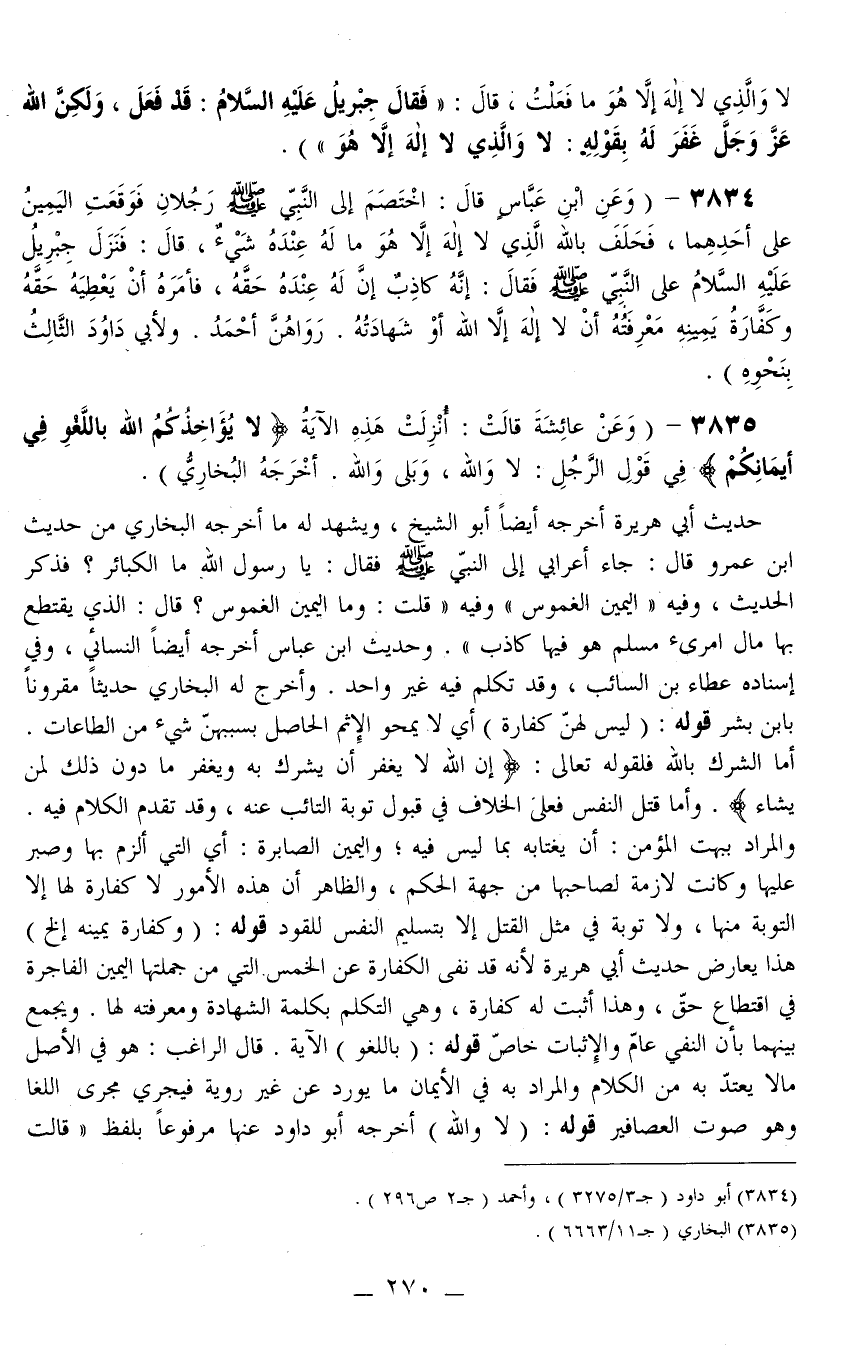 لا وَالَّذِي لا إِلٰهَ إلَّا هُوَ ما فَعَلْتُ ، قالَ : « فَقالَ جِبْرِيلُ عَلَيْهِ السَّلامُ : قَدْ فَعَلَ ، وَلَكِنَّ الله
عَزَّ وَجَلَّ غَفَرَ لَهُ بِقَوْلِهِ : لا وَالَّذِي لا إلٰهَ إلَّا هُوَ » ) .
٣٨٣٤ – ( وَعَنِ ابْنِ عَبَّاسٍ قالَ : اخْتَصَمَ إلى النَّبِيّ ﷺ رَجُلانِ فَوَقَعَتِ اليَمِينُ
على أحَدِهِما ، فَحَلَفَ بالله الَّذِي لا إلٰهَ إلَّا هُوَ ما لَهُ عِنْدَهُ شَيْءٌ ، قالَ : فَنَزَلَ جِبْرِيلُ
عَلَيْهِ السَّلامُ على النَّبِيّ ﷺ فَقالَ : إنَّهُ كاذِبٌ إنَّ لَهُ عِنْدَهُ حَقَّهُ ، فأمَرَهُ أنْ يَعْطِيَهُ حَقَّهُ
وكَفَّارَةُ يَمِينِهِ مَعْرِفَتُهُ أنْ لا إلٰهَ إلَّا الله أوْ شَهادَتُهُ . رَوَاهُنَّ أحْمَدُ . ولأبي دَاوُدَ الثَّالِثُ
بِنَحْوِهِ ) .
٣٨٣٥ – ( وَعَنْ عائِشَةَ قالَتْ : أُنْزِلَتْ هَذِهِ الآيَةُ ﴿ لا يُؤَاخِذُكُمُ الله باللَّغْوِ فِي
أيمَانِكُمْ ﴾ فِي قَوْلِ الرَّجُلِ : لا وَالله ، وَبَلى وَالله . أخْرَجَهُ البُخارِيُّ ) .
حديث أبي هريرة أخرجه أيضاً أبو الشيخ ، ويشهد له ما أخرجه البخاري من حديث
ابن عمرو قال : جاء أعرابي إلى النبيّ ﷺ فقال : يا رسول الله ما الكبائر ؟ فذكر
الحديث ، وفيه « اليمين الغموس » وفيه « قلت : وما اليمين الغموس ؟ قال : الذي يقتطع
بها مال امرىء مسلم هو فيها كاذب » . وحديث ابن عباس أخرجه أيضاً النسائي ، وفي
إسناده عطاء بن السائب ، وقد تكلم فيه غير واحد . وأخرج له البخاري حديثاً مقروناً
بابن بشر قوله : ( ليس لهنّ كفارة ) أي لا يمحو الإثم الحاصل بسببهنّ شيء من الطاعات .
أما الشرك بالله فلقوله تعالى : ﴿ إن الله لا يغفر أن يشرك به ويغفر ما دون ذلك لمن
يشاء ﴾ . وأما قتل النفس فعلى الخلاف في قبول توبة التائب عنه ، وقد تقدم الكلام فيه .
والمراد ببهت المؤمن : أن يغتابه بما ليس فيه ؛ واليمين الصابرة : أي التي ألزم بها وصبر
عليها وكانت لازمة لصاحبها من جهة الحكم ، والظاهر أن هذه الأمور لا كفارة لها إلا
التوبة منها ، ولا توبة في مثل القتل إلا بتسليم النفس للقود قوله : ( وكفارة يمينه إلخ )
هذا يعارض حديث أبي هريرة لأنه قد نفى الكفارة عن الخمس التي من جملتها اليمين الفاجرة
في اقتطاع حقّ ، وهذا أثبت له كفارة ، وهي التكلم بكلمة الشهادة ومعرفته لها . ويجمع
بينهما بأن النفي عامّ والإثبات خاصّ قوله : ( باللغو ) الآية . قال الراغب : هو في الأصل
مالا يعتدّ به من الكلام والمراد به في الأيمان ما يورد عن غير روية فيجري مجرى اللغا
وهو صوت العصافير قوله : ( لا والله ) أخرجه أبو داود عنها مرفوعاً بلفظ « قالت
(٣٨٣٤) أبو داود ( جـ٣/٣٢٧٥ ) ، وأحمد ( جـ٢ ص٢٩٦ ) .
(٣٨٣٥) البخاري ( جـ١١/٦٦٦٣ ) .
— ٢٧٠ —